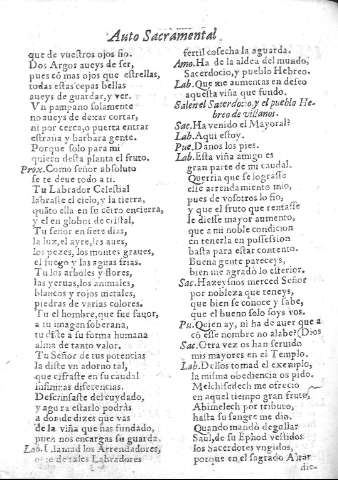 Auto Sacramental
que de vuestros ojos fio.
Dos Argos aueys de ser,
pues cõ mas ojos que estrellas,
todas estas cepas bellas
aueys de guardar, y ver.
Vn pampano solamente
no aueys de dexar cortar,
ni por cerca, o puerta entrar
estraña y barbara gente.
Porque solo para mi
quiero desta planta el fruto.
Prox. Como señor absoluto
se te deue todo a ti.
Tu Labrador Celestial
labraste el cielo, y la tierra,
quãto ella en su cẽtro encierra,
y el en globos de cristal,
Tu señor en siete dias,
la luz, el ayre, las aues,
los pezes, los montes graues,
el fuego y las aguas frias.
Tu los arboles y flores,
las yeruas, los animales,
blancos y rojos metales,
piedras de varias colores.
Tu el hombre, que fue fauor,
a tu imagen soberana,
tu diste a su forma humana
alma de tanto valor.
Tu Señor de tus potencias
la diste vn adorno tal,
que cifraste en su caudal
infinitas diferencias.
Descansaste del cuydado,
y agora estarlo podrás
a donde dizes que vas
de la viña que has fundado,
pues nos encargas su guarda.
Lab. Llamad los Arrendadores,
de tales Labradores
fertil cosecha la aguarda.
Amo. Ha de la aldea del mundo,
Sacerdocio, y pueblo Hebreo.
Lab. Que me aumentas en deseo
aquesta viña que fundo.
Salen el Sacerdocio, y el pueblo Hebreo
de villanos.
Sac. Ha venido el Mayoral?
Lab. Aqui estoy.
Pue. Danos los pies.
Lab. Esta viña amigo es
gran parte de mi caudal.
Querria que se lograsse
este arrendamiento mio,
pues de vosotros lo fio,
y que el fruto que rentasse
le diesse mayor aumento,
que a mi noble condicion
en tenerla en possession
basta para estar contento.
Buena gente pareceys,
bien me agradò lo esterior.
Sac. Hazeysnos merced Señor
por nobleza que teneys,
que bien se conoce y sabe,
que el bueno solo soys vos.
Pu. Quien ay, ni ha de auer que a
cõ esse nombre no alabe? (Dios
Sac. Otra vez os han seruido
mis mayores en el Templo.
Lab. Dellos tomad el exemplo,
la misma obediencia os pido.
Melchisedech me ofrecio
en aquel tiempo gran fruto,
Abimelech por tributo,
hasta su sangre me dio.
Quando mandò degollar
Saul, de su Ephod vestidos
los sacerdotes vngidos,
porque en el sagrado Altar